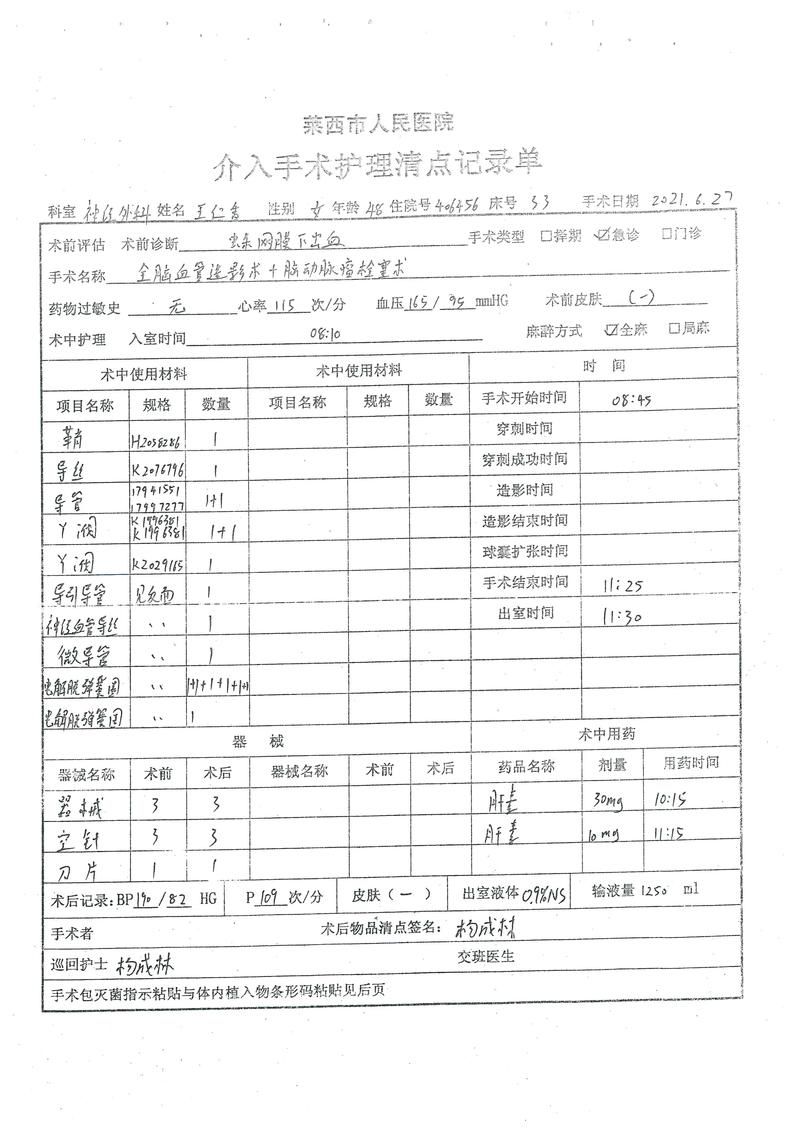 莱西市人民医院
介入手术护理清点记录单
科室 神经外科 姓名 王仁香 性别 女 年龄 48 住院号 406456 床号 33 手术日期 2021.6.27
术前评估 术前诊断 蛛网膜下出血 手术类型 □择期 ☑急诊 □门诊
手术名称 全脑血管造影术+脑动脉瘤栓塞术
药物过敏史 无 心率 115 次/分 血压 165/95 mmHG 术前皮肤 (-)
术中护理 入室时间 08:10 麻醉方式 ☑全麻 □局麻
术中使用材料 术中使用材料 时 间
项目名称 规格 数量 项目名称 规格 数量 手术开始时间 08:45
鞘 H2058286 1 穿刺时间
导丝 K2076796 1 穿刺成功时间
导管 17941551 17997277 1+1 造影时间
Y阀 K1996381 K1996381 1+1 造影结束时间
Y阀 K2029165 1 球囊扩张时间
导引导管 见负面 1 手术结束时间 11:25
神经血管导丝 〃 1 出室时间 11:30
微导管 〃 1
电解脱弹簧圈 〃 1+1+1+1+1
电解脱弹簧圈 〃 1
器 械 术中用药
器械名称 术前 术后 器械名称 术前 术后 药品名称 剂量 用药时间
器械 3 3 肝素 30mg 10:15
空针 3 3 肝素 10mg 11:15
刀片 1 1
术后记录:BP 190/82 HG P 109 次/分 皮肤(-) 出室液体 0.9%NS 输液量 1250 ml
手术者 术后物品清点签名: 杨成林
巡回护士 杨成林 交班医生
手术包灭菌指示粘贴与体内植入物条形码粘贴见后页